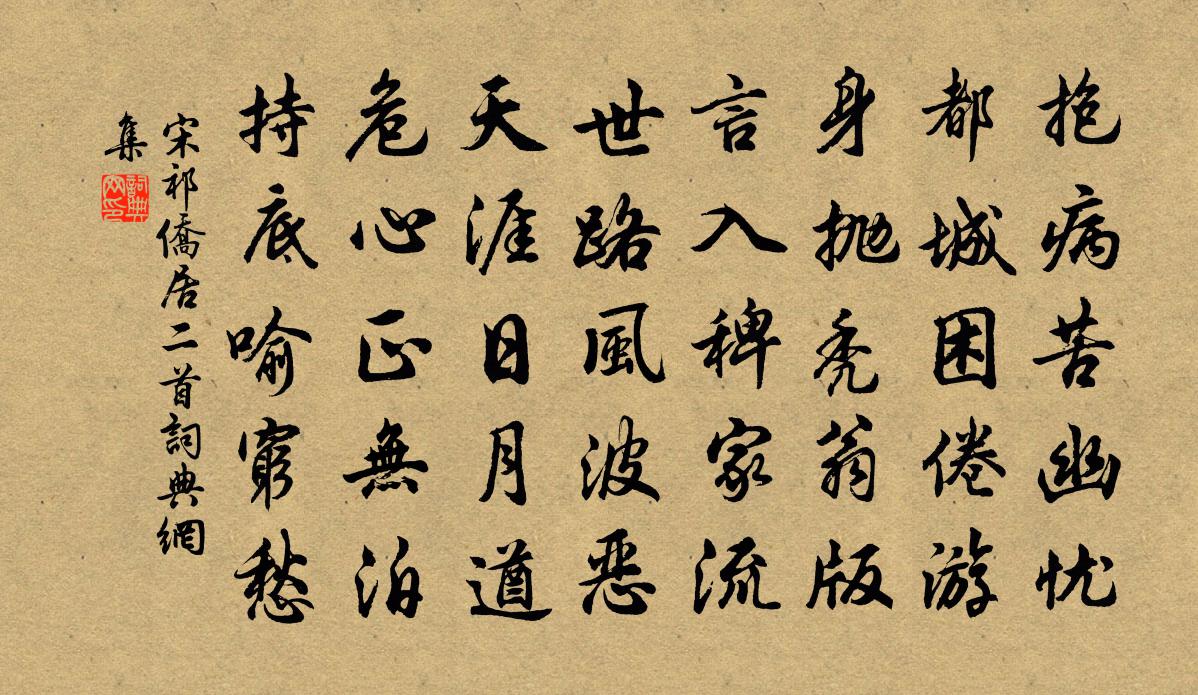 抱病苦幽忧
都城困倦游
身抛秃翁版
言入稗家流
世路風波恶
天涯日月遒
危心正無泊
持底喻窮愁
宋祁僑居二首詞典網
集
詞典
网印